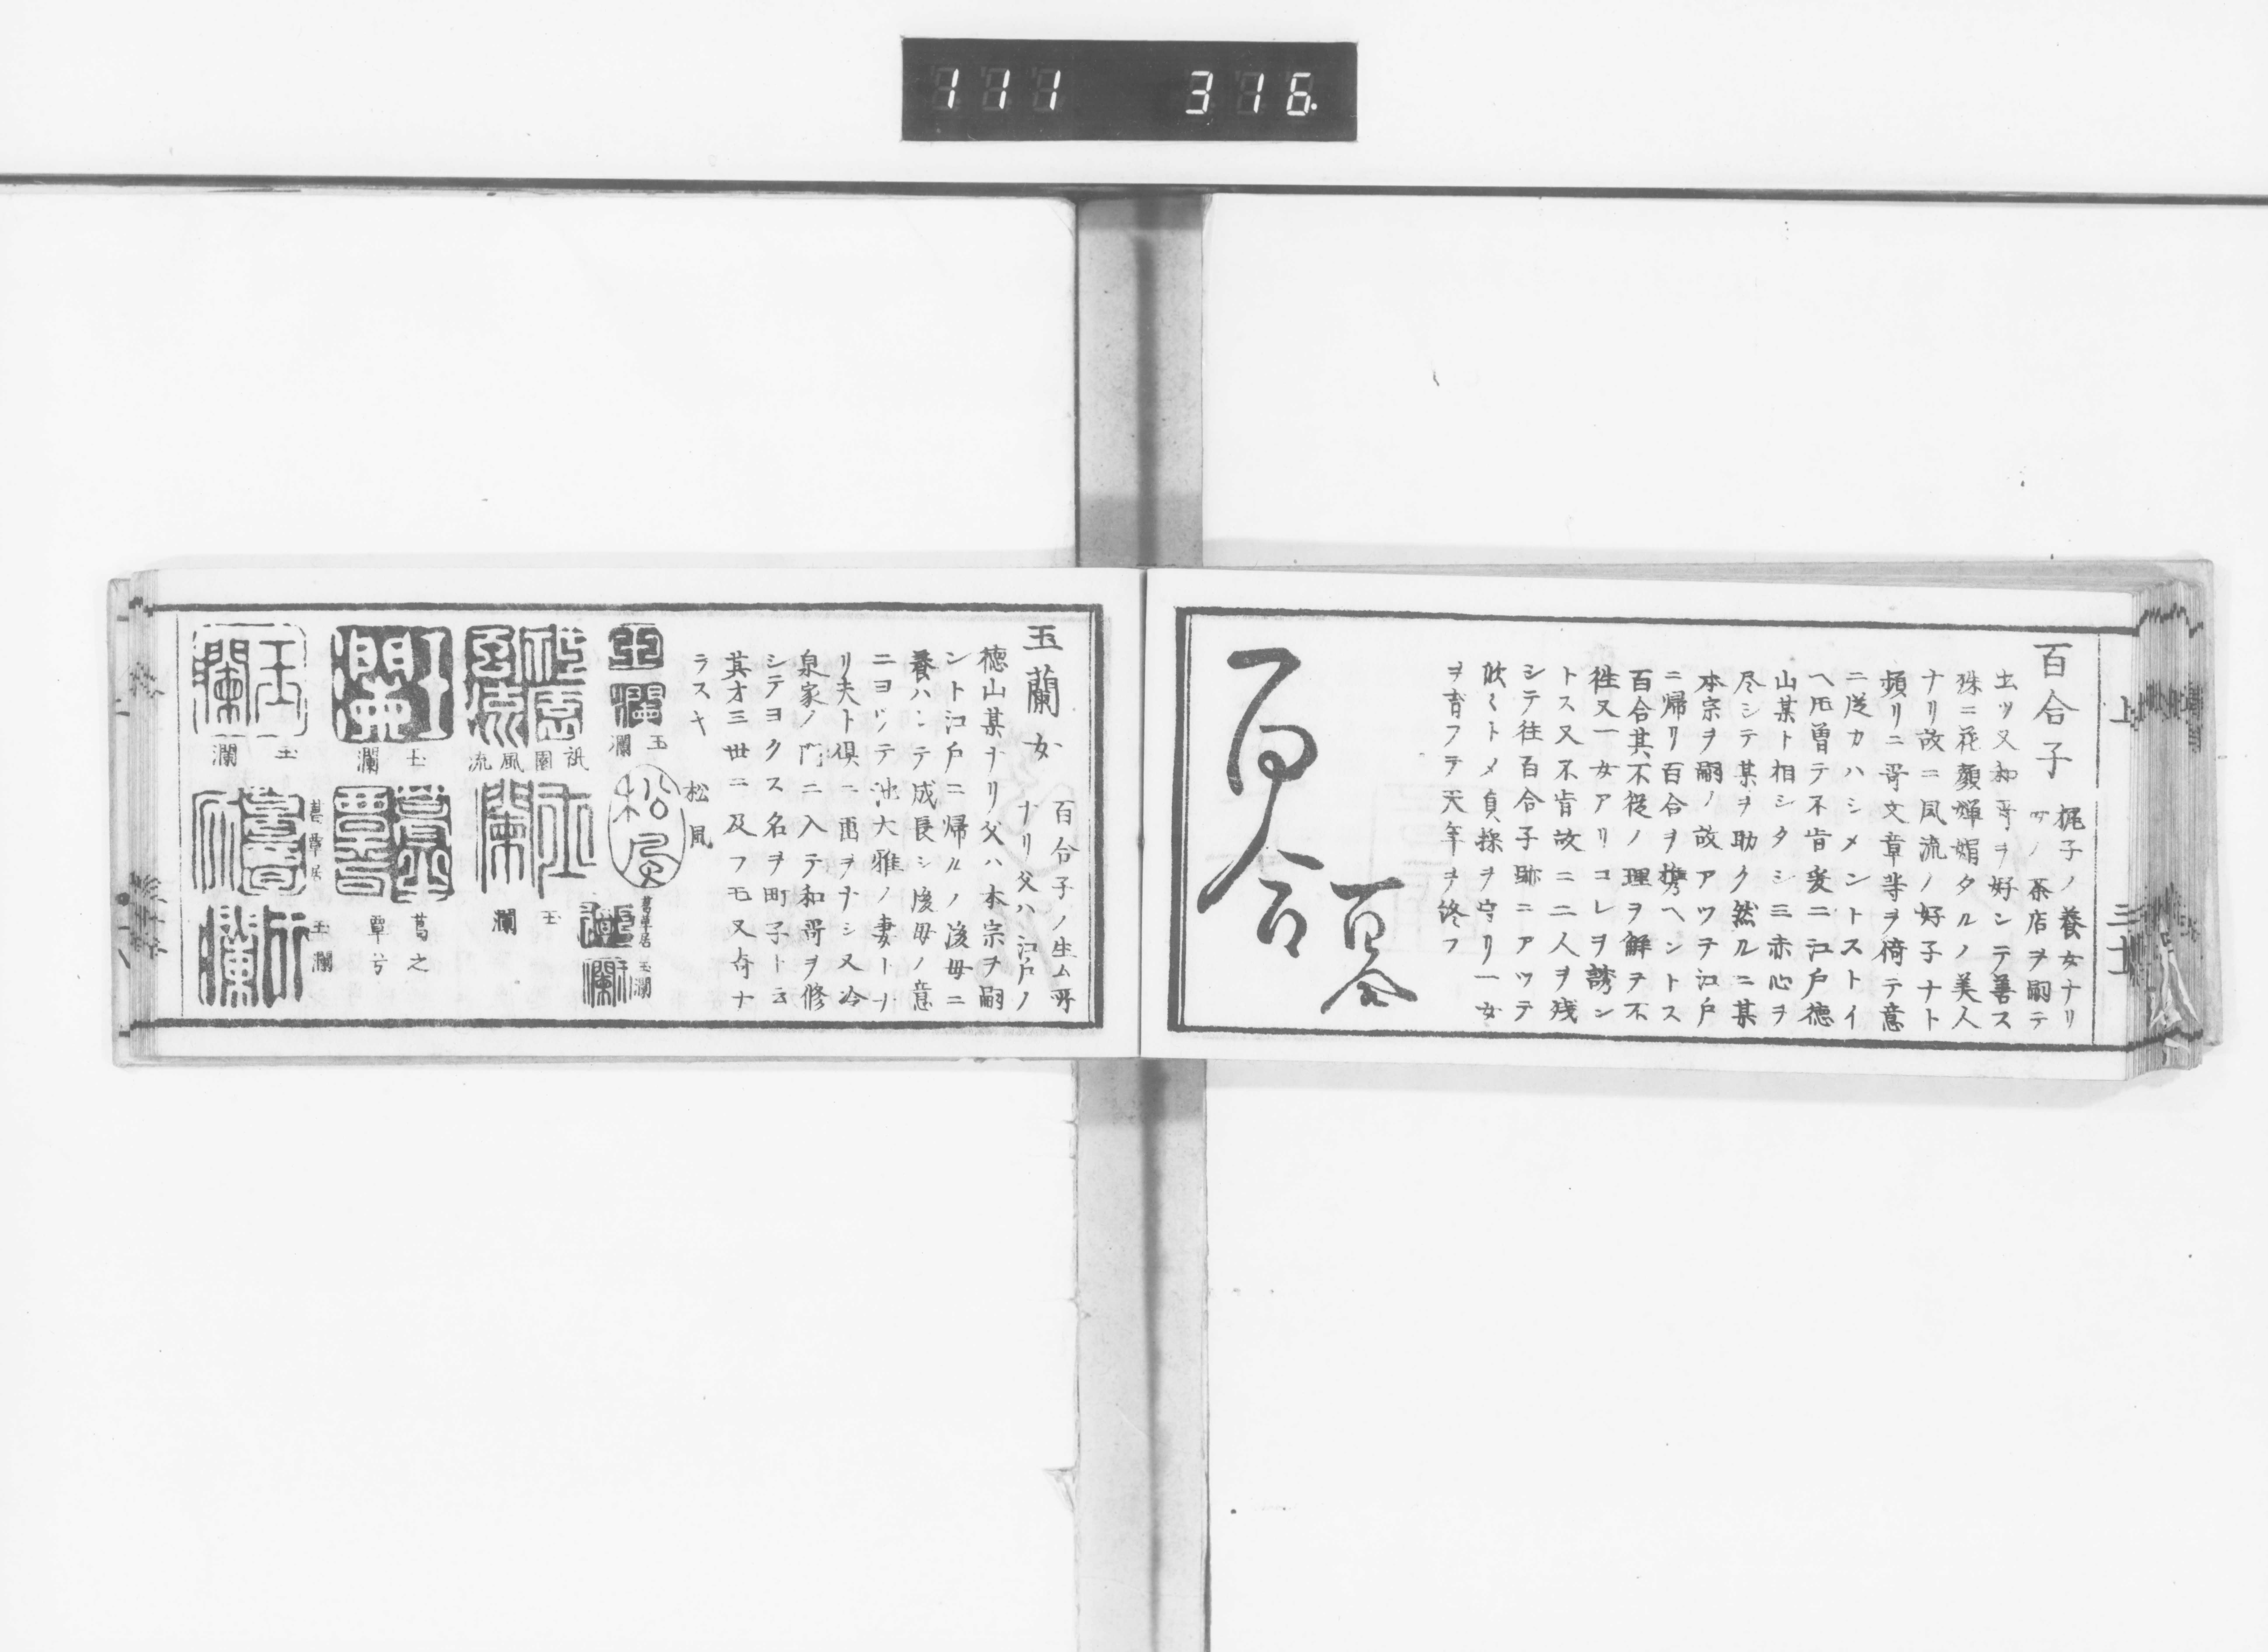 111 316.
上 三十
百合子 梶子ノ養女ナリ
ソノ茶店ヲ嗣テ
出ツ又和哥ヲ好ンテ善ス
殊ニ花顔嬋娟タルノ美人
ナリ故ニ風流ノ好子ナト
頻リニ哥文章等ヲ倚テ意
ニ従カハシメントストイ
ヘ𪜈曽テ不肯爰ニ江戸徳
山某ト相シタシミ赤心ヲ
尽シテ某ヲ助ク然ルニ某
本宗ヲ嗣ノ故アツテ江戸
ニ帰リ百合ヲ携ヘントス
百合其不従ノ理ヲ解ヲ不
往又一女アリコレヲ誘ン
トス又不肯故ニ二人ヲ残
シテ往百合子跡ニアツテ
トメ貞操ヲ守リ一女
ヲ育フテ天年ヲ終フ
百合
百合
玉蘭女 百合子ノ生ム所
ナリ父ハ江戸ノ
徳山某ナリ父ハ本宗ヲ嗣
ント江戸ニ帰ルノ後母ニ
養ハレテ成長シ後母ノ意
ニヨツテ池大雅ノ妻トナ
リ夫ト倶ニ画ヲナシ又冷
泉家ノ門ニ入テ和哥ヲ修
シテヨクス名ヲ町子ト云
其才三世ニ及フモ又奇ナ
ラスヤ
松風
松風
玉瀾
玉瀾
葛覃居
玉瀾
祇園風流
祇園風流
玉瀾
玉瀾
玉瀾
葛之覃兮
葛之覃兮
玉瀾
玉瀾
葛覃居
玉瀾